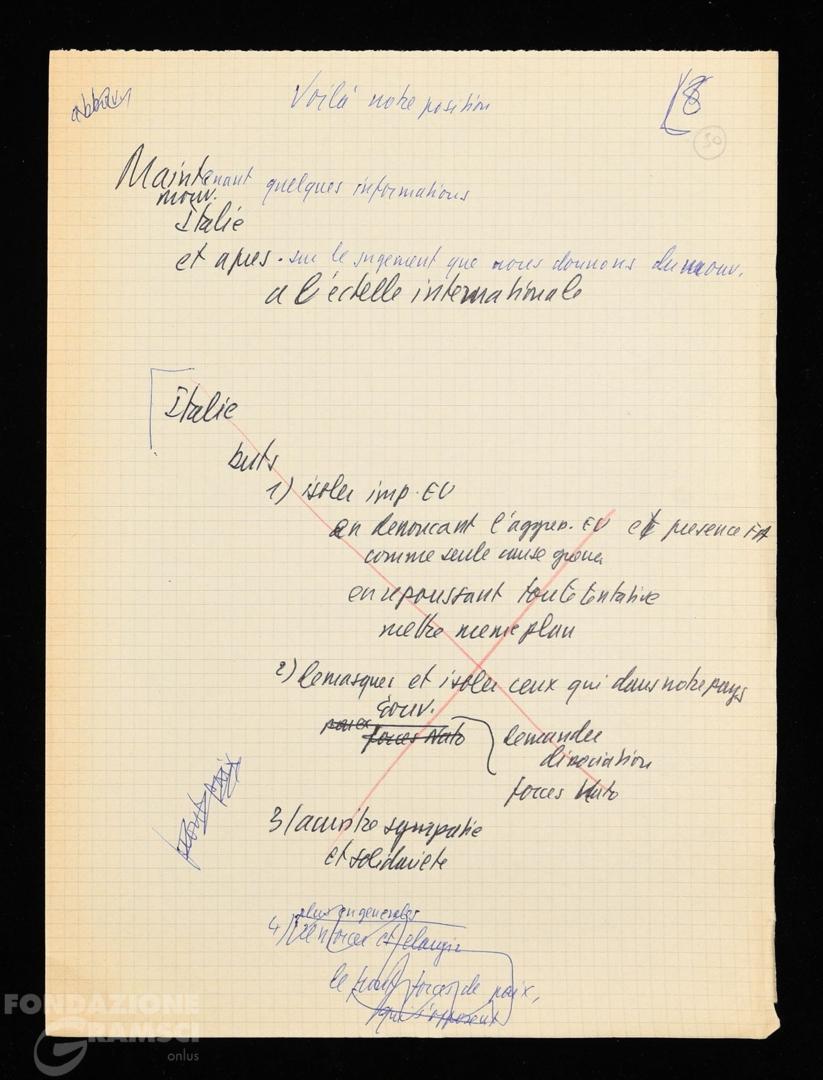 Voilà notre position
[8
50
Maintenant quelques informations
mouv.
Italie
et apres - sur le jugement que nous donnons du mouv.
a l'échelle internationale
Italie
buts
1) isoler imp. EU
en denoncant l'aggres. EU et presence FA
comme seule cause
en repoussant toute tentative
mettre meme plan
2) demasquer et isoler ceux qui dans notre pays
Gouv.
forces Nato
demander
dissociation
forces Nato
3) acuoitre sympatie
et solidariete
front paix
4) plus en generales
renforcer et elargir
le front forces de paix,
qui s'opposent
FONDAZIONE
GRAMSCI
onlus